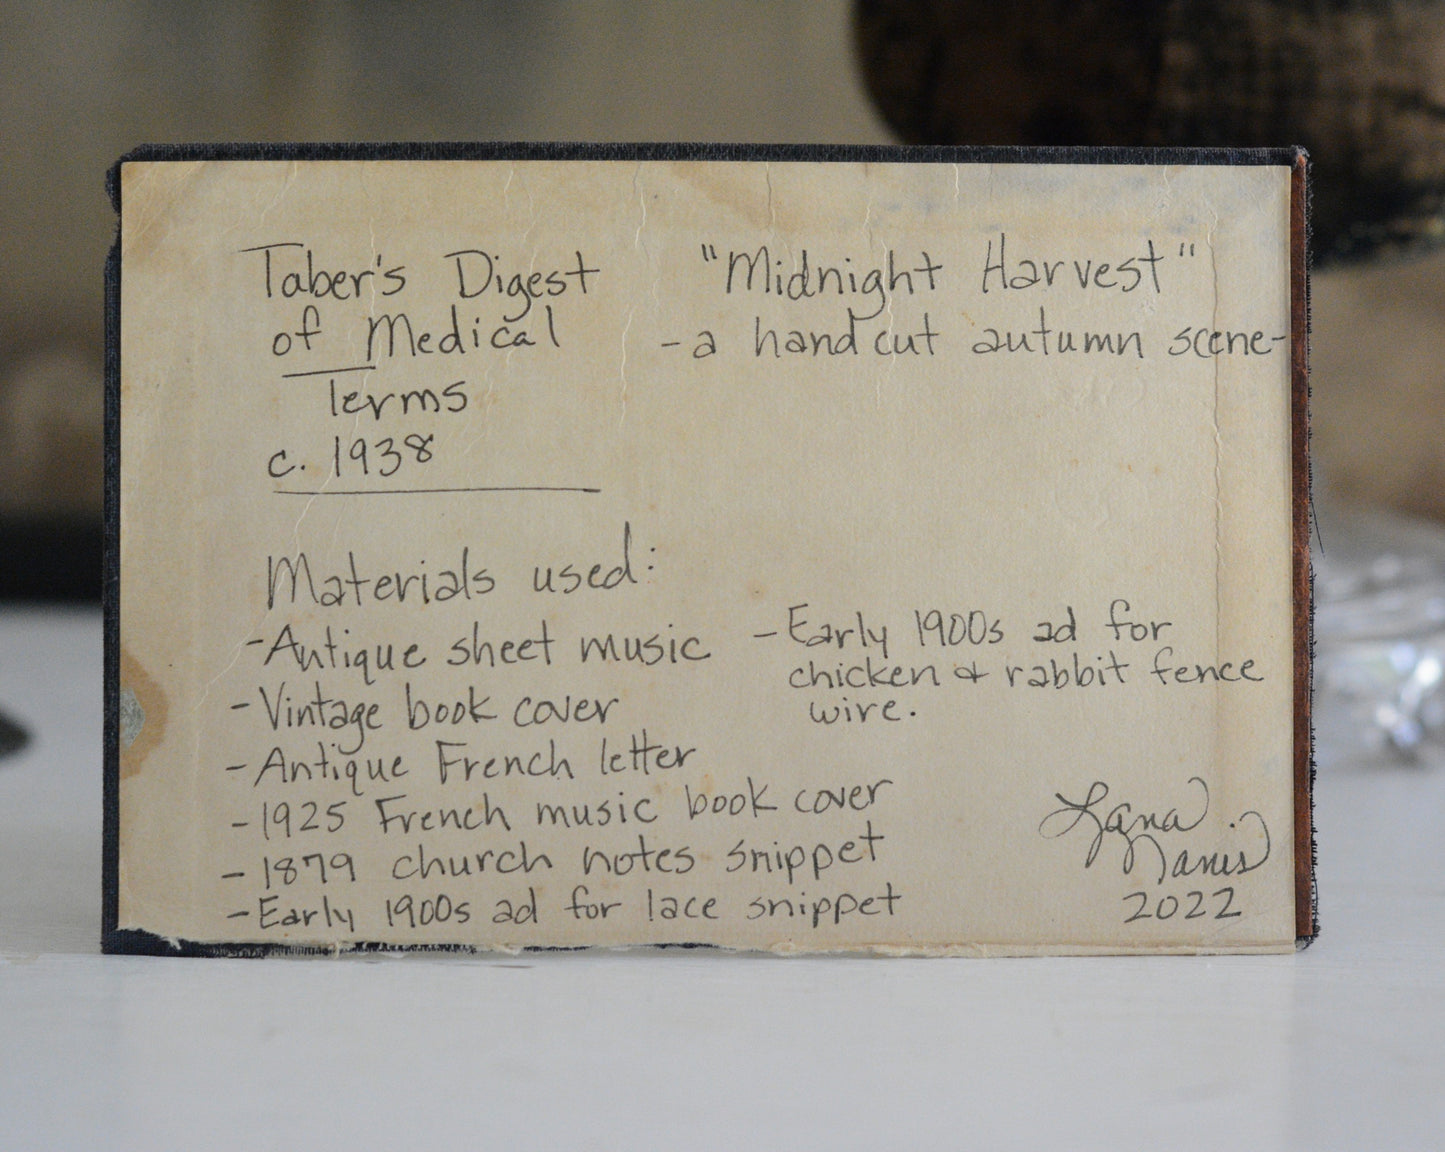 Taber's Digest
of Medical
Terms
c. 1938
"Midnight Harvest"
-a handcut autumn scene-
Materials used:
-Antique sheet music
-Vintage book cover
-Antique French letter
-1925 French music book cover
-1879 church notes snippet
-Early 1900s ad for lace snippet
-Early 1900s ad for
chicken & rabbit fence
wire.
Lana
2022